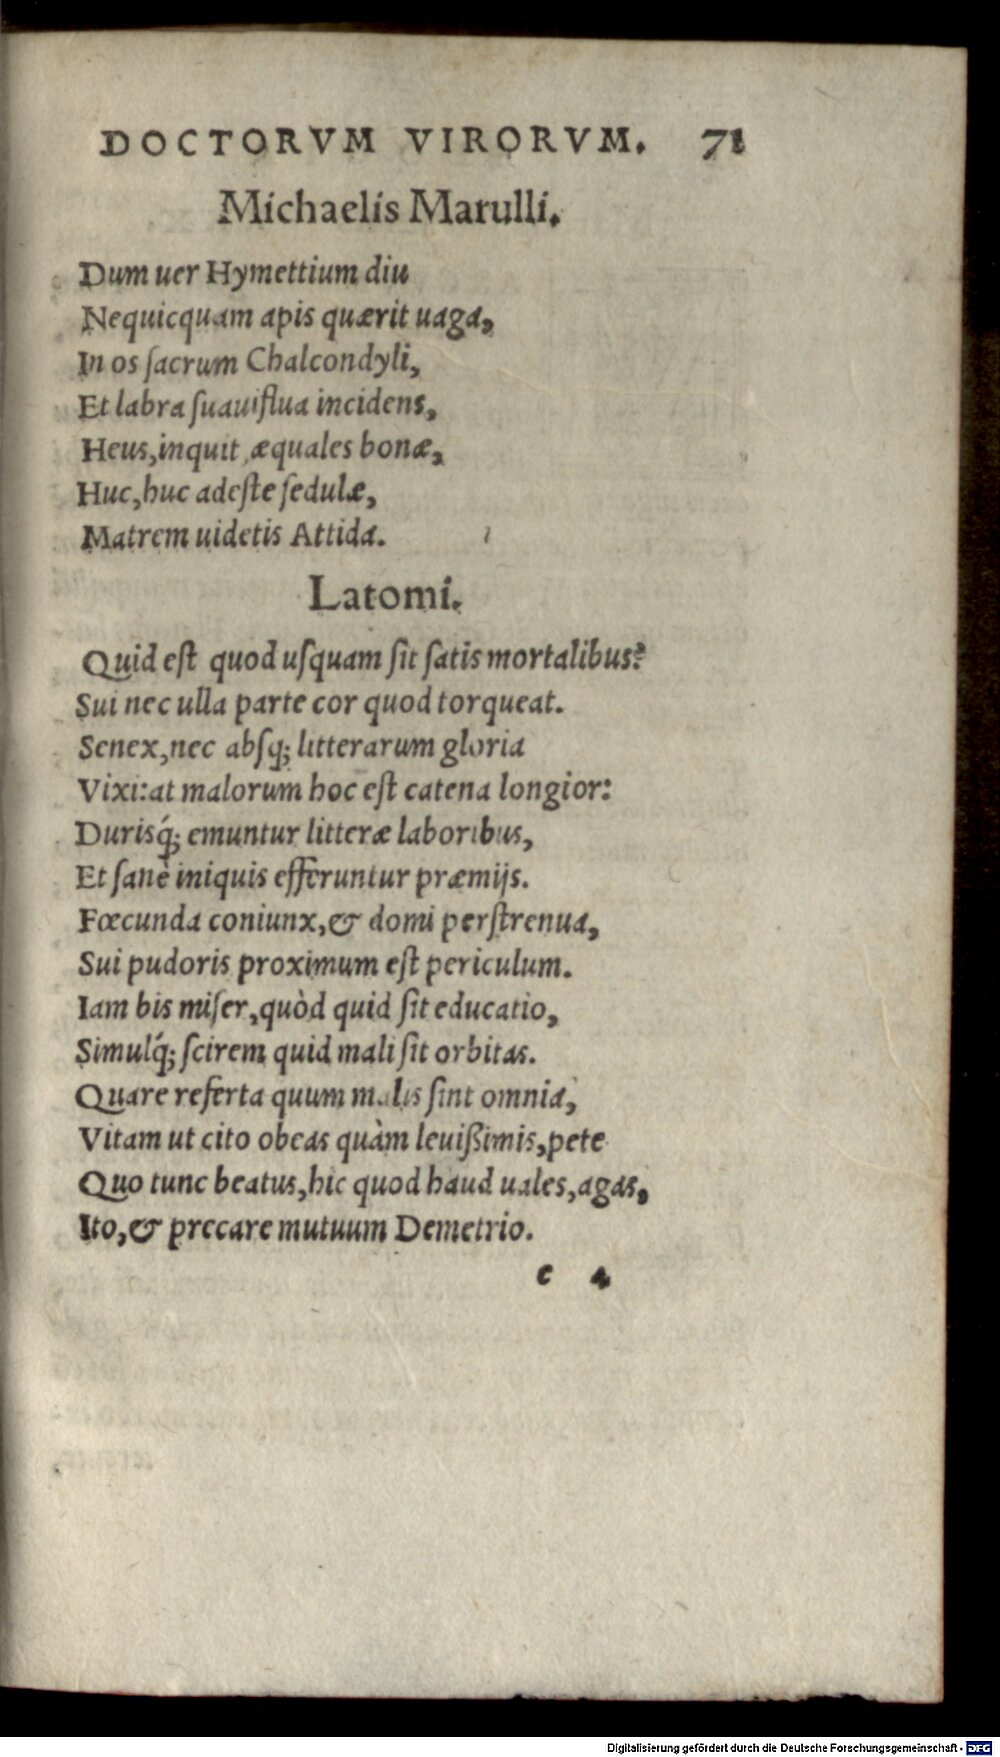 DOCTORVM VIRORVM. 71
Michaelis Marulli.
Dum uer Hymettium diu
Nequicquam apis quærit uaga,
In os ſacrum Chalcondyli,
Et labra ſuauiflua incidens,
Heus,inquit æquales bonæ,
Huc,huc adeſte ſedulæ,
Matrem uidetis Attida.
Latomi.
Quid eſt quod uſquam ſit ſatis mortalibus?
Sui nec ulla parte cor quod torqueat.
Senex,nec abſq; litterarum gloria
Vixi:at malorum hoc eſt catena longior:
Durisq́; emuntur litteræ laboribus,
Et ſanè iniquis efferuntur præmijs.
Fœcunda coniunx,& domi perſtrenua,
Sui pudoris proximum eſt periculum.
Iam bis miſer,quòd quid ſit educatio,
Simulq́; ſcirem quid mali ſit orbitas.
Quare referta quum malis ſint omnia,
Vitam ut cito obeas quàm leuißimis,pete
Quo tunc beatus,hic quod haud uales,agas,
Ito,& precare mutuum Demetrio.
e 4
Digitalisierung gefördert durch die Deutsche Forschungsgemeinschaft - DFG